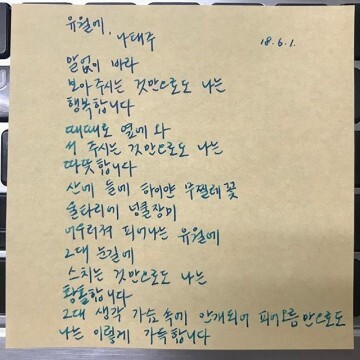 유월에, 나태주 18.6.1.
말없이 바라
보아주시는 것만으로도 나는
행복합니다
때때로 옆에 와
서 주시는 것만으로도 나는
따뜻합니다
산에 들에 하이얀 무찔레꽃
울타리에 넝쿨장미
어우러져 피어나는 유월에
그대 눈길에
스치는 것만으로도 나는
황홀합니다
그대 생각 가슴속에 안개되어 피어오름만으로도
나는 이렇게 가득합니다